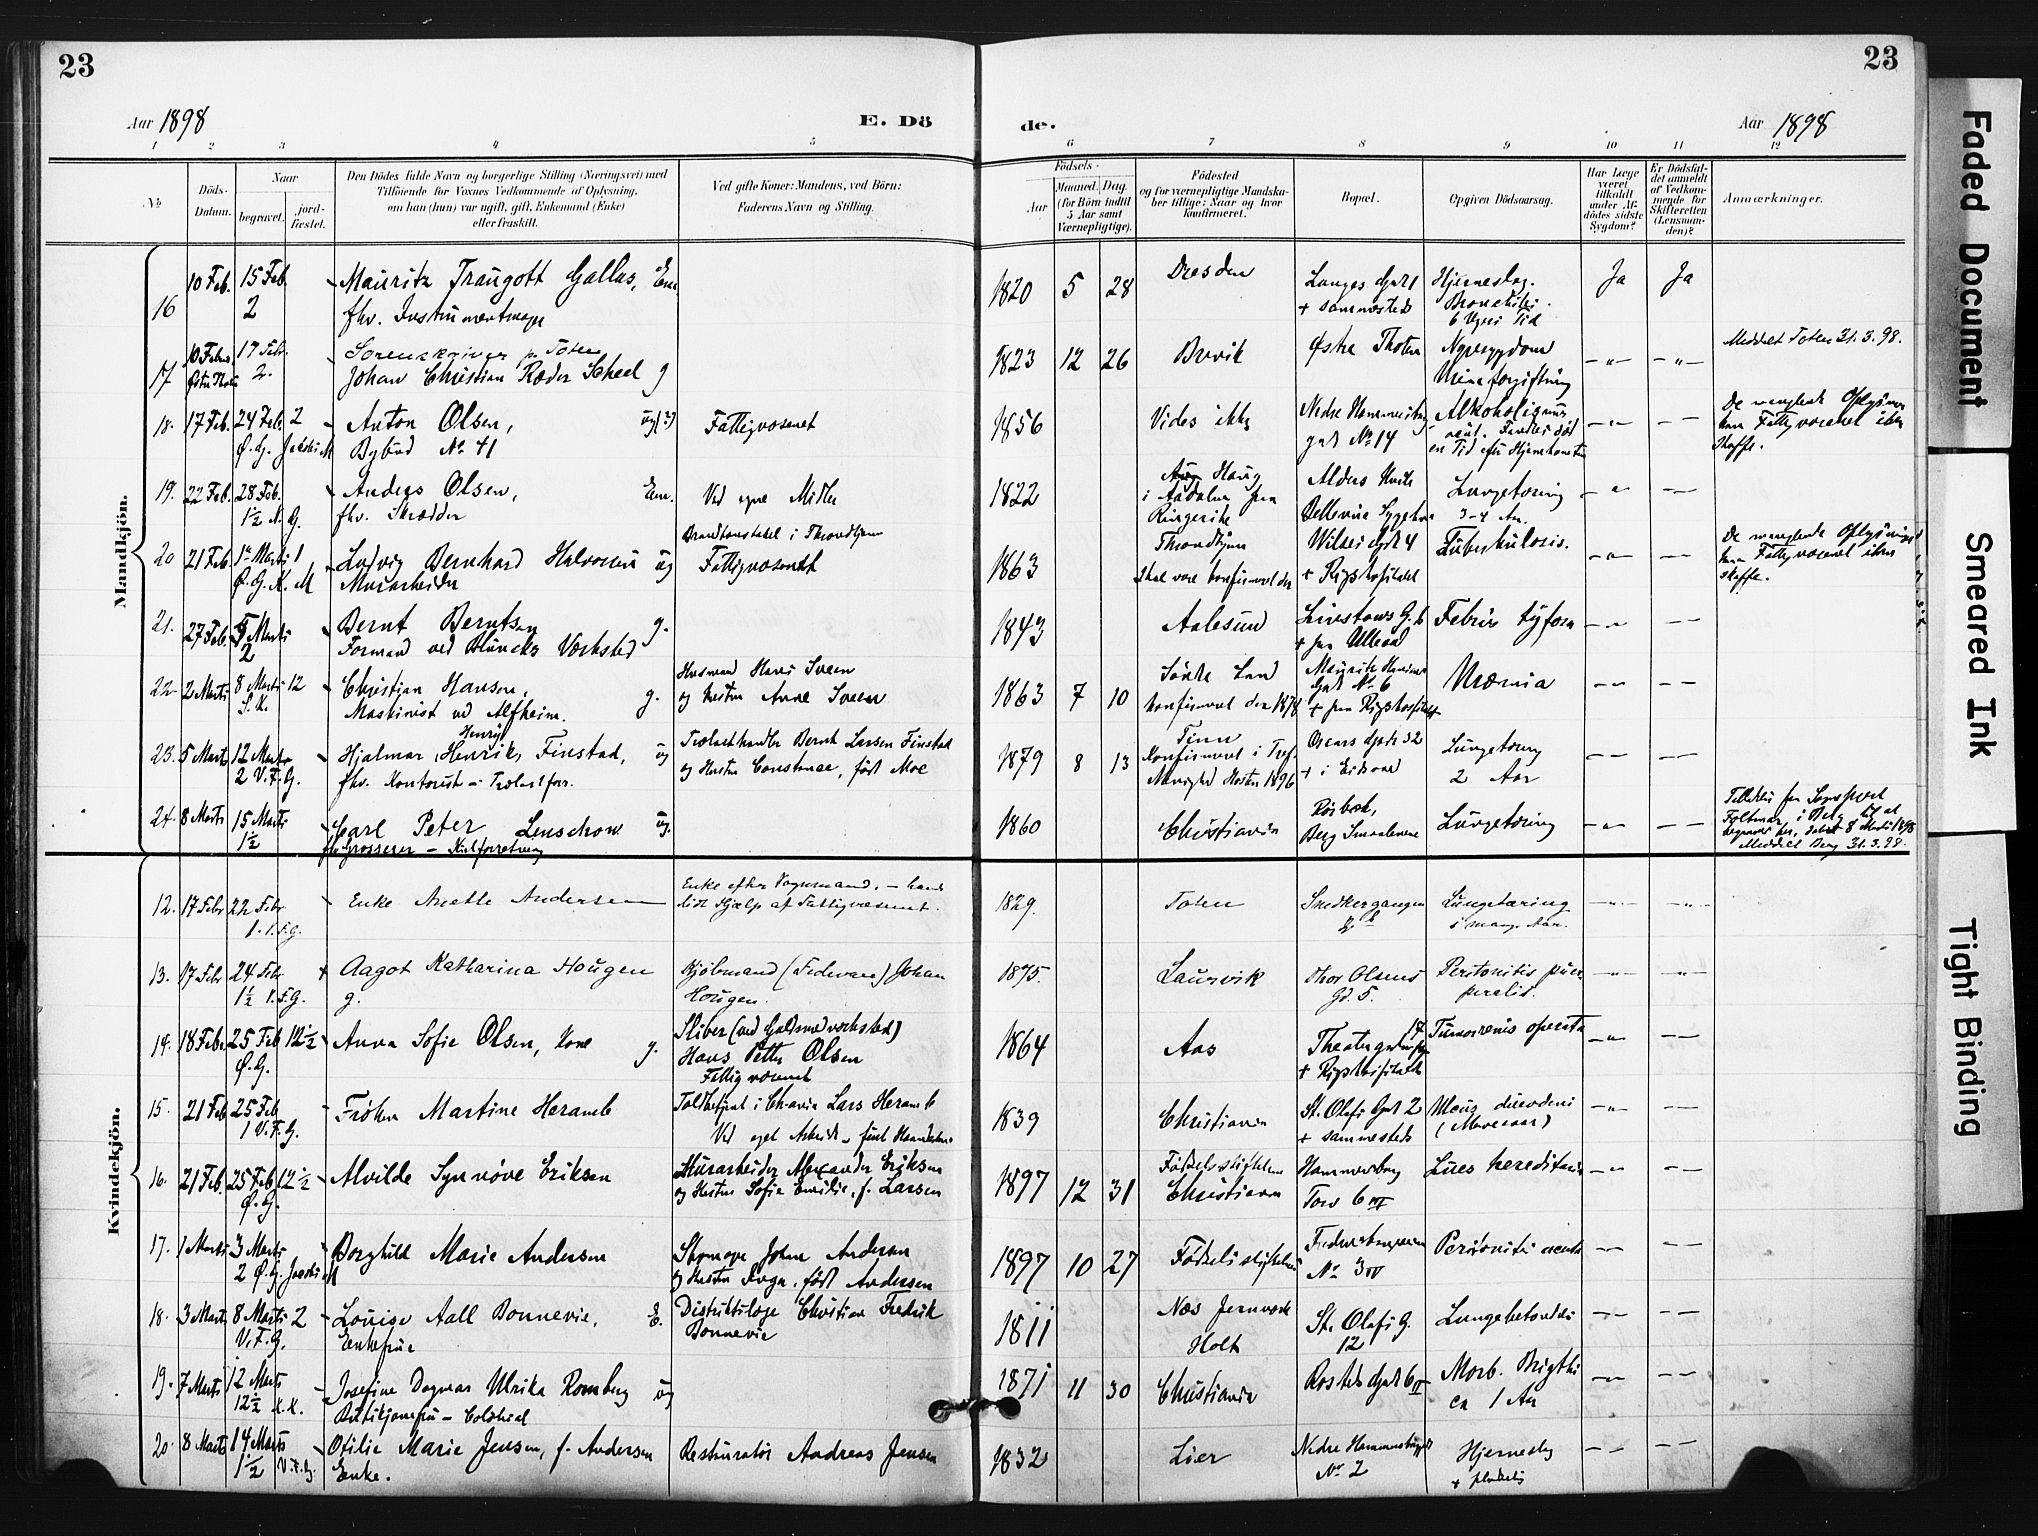 23
23
Aar 1898
E. Dö
de.
Aar 1898
1 2 3 4 5 6 7 8 9 10 11 12
No
Döds-Datum.
Naar
begravet.
jordfæstet.
Den Dödes fulde Navn og borgerlige Stilling (Næringsvei) med
Tilföiende for Voxnes Vedkommende af Oplysning,
om han (hun) var ugift, gift, Enkemand (Enke)
eller fraskilt.
Ved gifte Koner: Mandens, ved Börn:
Faderens Navn og Stilling.
Födsels-
Aar
Maaned. Dag.
(for Börn indtil
5 Aar samt
Værnepligtige).
Födested
og for værnepligtige Mandskaber tillige: Naar og hvor
konfirmeret.
Bopæl.
Opgiven Dödsaarsag.
Har Læge
været
tilkaldt
under Afdödes sidste
Sygdom?
Er Dödsfaldet anmeldt
af Vedkommende for
Skifteretten
(Lensmanden)?
Anmærkninger.
Mandkjön.
16 10 Feb. 15 Feb. 2 Mauritz Traugott Gallus, Em.
fhv. Instrumentmager
1820 5 28 Dresden Langes Gade 1 + sammesteds Hjerneslag. Bronchitis. 6 Ugers Tid Ja Ja
17 10 Febr. 17 Febr. 2. Sorenskriver på Toten
Johan Christian Ræder Scheel g
1823 12 26 Brevik Østre Thoten Nyresygdom Urinforgiftning Meddelt Toten 31.3.98.
18. 17 Feb. 24 Feb. 2 Ø.G. Anton Olsen, ug(?)
Bybud No. 41
Fattigvæsenet
1856 Vides ikke Nedre Hammersborg gade No 14 Alkoholismus
De manglende Oplysninger
kan Fattigvæsenet ikke
skaffe.
19. 22 Feb. 28 Feb. 1½ N.G. Anders Olsen, Em.
fhv. Skrædder
Ved egne Midler
1822 Haug i Aadalen paa Ringerike Alders Hvile Bellevue Lungetæring 3-4 Aar.
20 21 Feb. 1ste Marts 1 Ø.G. K.M Ludvig Bernhard Halvorsen ug
Murarbeider
Brandkonstabel i Throndhjem
Fattigvæsenet
1863 Throndhjem Skal være konfirmeret der Wilses Gade 4 + Rigshospitalet Tuberkulosis.
De manglende Oplysninger
kan Fattigvæsenet ikke
skaffe.
21. 27 Feb. 5 Marts 2 Bernt Berntsen g.
Formand ved Bluncks Værksted
1843 Aalesund Linstows G. 6 + paa Ullevaal Febris tyfoid
22 2 Marts 8 Marts 12 S.K. Christian Hansen, g.
Maskinist ved Alfheim.
Husmand Hans Sveen
og Hustru Anne Sveen
1863 7 10 Søndre Land konfirmeret der 1878 Mauritz Hansens Gade No 6 + paa Rigshospitalet Uræmia
23. 5 Marts 12 Marts 2 V.F.G. Hjalmar Henrik Henry Finstad, ug
fhv. Kontorist - Trælastforr.
Trælasthandler Bernt Larsen Finstad
og Hustru Constance, født Moe
1879 8 13 Konfirmeret i Tref. Menighed Høsten 1896 Oscars Gade 32 + i Eidsvold Lungetæring 2 Aar
24. 8 Marts 15 Marts 1½ Carl Peter Lenschow ug.
fhv Grosserer -
1860 Christiania Berg Smaalenene Lungetæring
Meddelt Berg 31.3.98.
Kvindekjön.
12. 17 Febr 22 Febr 1. V.F.G. Enke Anette Andersen
Enke efter Vognmand, - havde
lidt Hjælp af Fattigvæsenet.
1829. Toten Snedkergangen Lungetæring i mange Aar.
13. 17 Febr 24 Febr 1½ V.F.G. Aagot Katharina Hougen
g.
Kjøbmand (Federvare) Johan
Hougen.
1875. Laurvik Thor Olsens Gd. 5. Peritonitis puerperalis.
14. 18 Febr. 25 Feb 12½ Ø.G. Anna Sofie Olsen, Kone g.
Sliber (ved Guldsmedværksted)
Hans Petter Olsen
Fattigvæsenet
1864 Aas Theatergaden 17 + Rigshospitalet Tumor renis operata
15. 21 Feb 25 Feb 1 V.F.G. Frøken Martine Heramb
Toldbetjent i Ch-ania Lars Heramb
Ved eget Arbeide - fint Haandarbeide
1839 Christiania St. Olafs Gade 2 + sammesteds Ulcus duodeni (Mavesaar)
16. 21 Feb. 25 Feb 12½ Ø.G. Alvilde Synnøve Eriksen
Murarbeider Alexander Eriksen
og Hustru Sofie Emilie, f. Larsen
1897 12 31 Fødselsstiftelsen Christiania Hammersborg Torv 6 III Lues hereditaria
17. 1 Marts 3 Marts 2 Ø.G. Borghild Marie Andersen
Skomager Johan Andersen
og Hustru Inga, født Andersen
1897 10 27 Fødselsstiftelsen No 3 IV Peritonitis acuta
18. 3 Marts 8 Marts 2 V.F.G. Louise Aall Bonnevie, E.
Enkefrue
Distriktslæge Christian Fredrik
Bonnevie
1811 Næs Jernværk Holt St. Olafs G. 12 Lungebetændelse
19. 7 Marts 12 Marts 12½ K.K. Josefine Dagmar Ulrika Romberg ug
Butikjomfru -
1871 11 30 Christiania Rosteds Gade 6 II Morb. Brigthi ca 1 Aar
20. 8 Marts 14 Marts 1½ V.F.G. Otilie Marie Jensen, f. Andersen
Enke.
Restauratør Andreas Jensen
1832 Lier Nedre Hammersborggade No 2 Hjerneslag + pludselig
Faded Document
Smeared Ink
Tight Binding